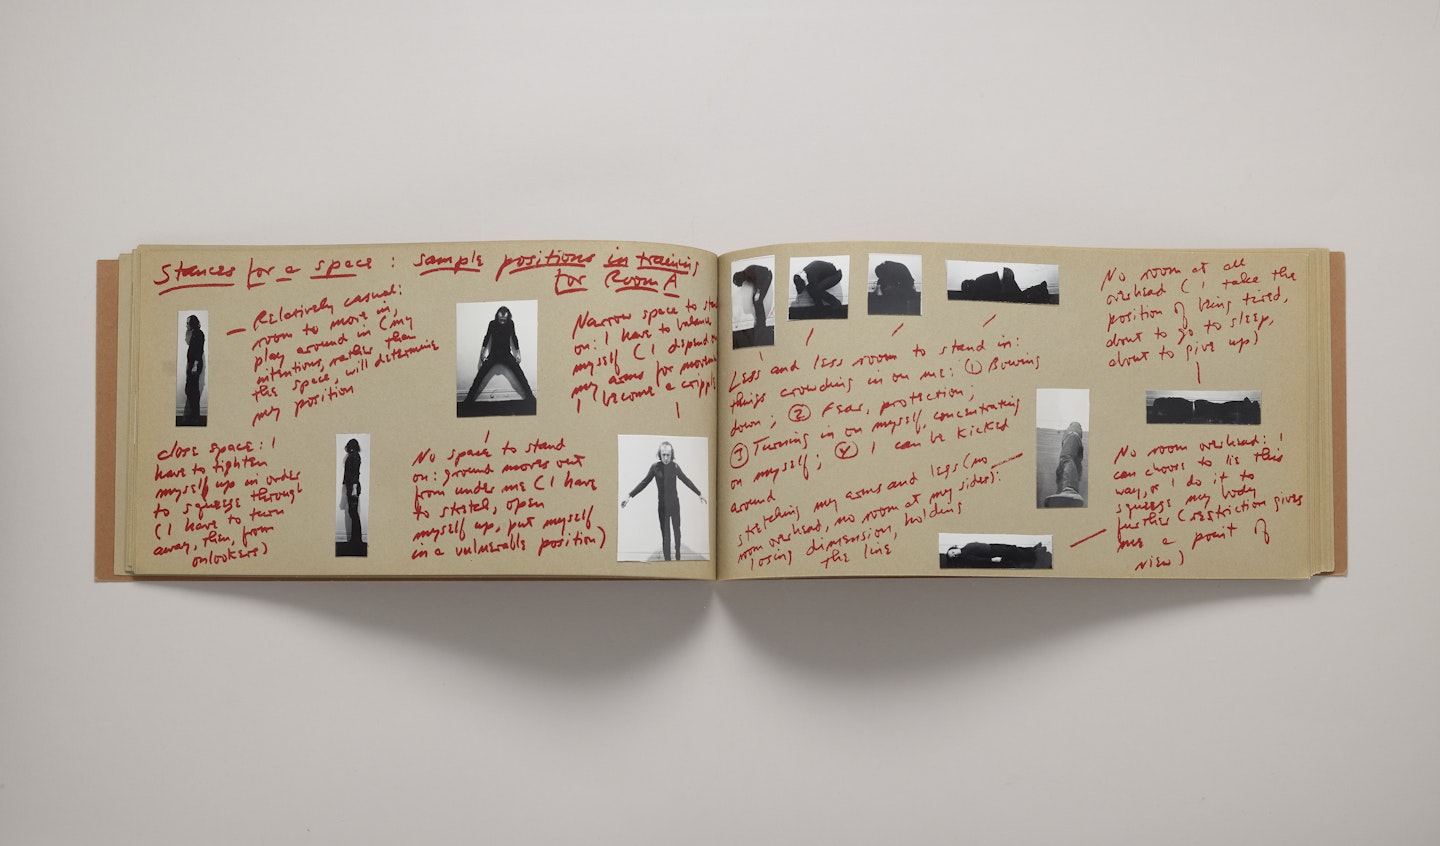 Stances for a space : sample positions in training
for Room A
Relatively casual:
room to move in,
play around in (my
intentions, rather than
the space, will determine
my position
close space: I
have to tighten
myself up in order
to squeeze through
(I have to turn
away, then, from
onlookers)
No space to stand
on: ground moves out
from under me (I have
to stretch, open
myself up, put myself
in a vulnerable position)
Narrow space to
on: I have to balance
myself (I depend
my arms for
I become a cripple
Less and less room to stand in:
things crowding in on me: ① Bowing
down; ② Fear, protection;
③ Turning in on myself, concentrating
on myself; ④ I can be kicked
around
stretching my arms and legs (no
room overhead, no room at my sides):
losing dimension, holding
the line
No room at all
overhead (I take the
position of being tired,
about to go to sleep,
about to give up)
No room overhead: I
can choose to lie this
way, or I do it to
squeeze my body
further (restriction gives
me a point of
view)